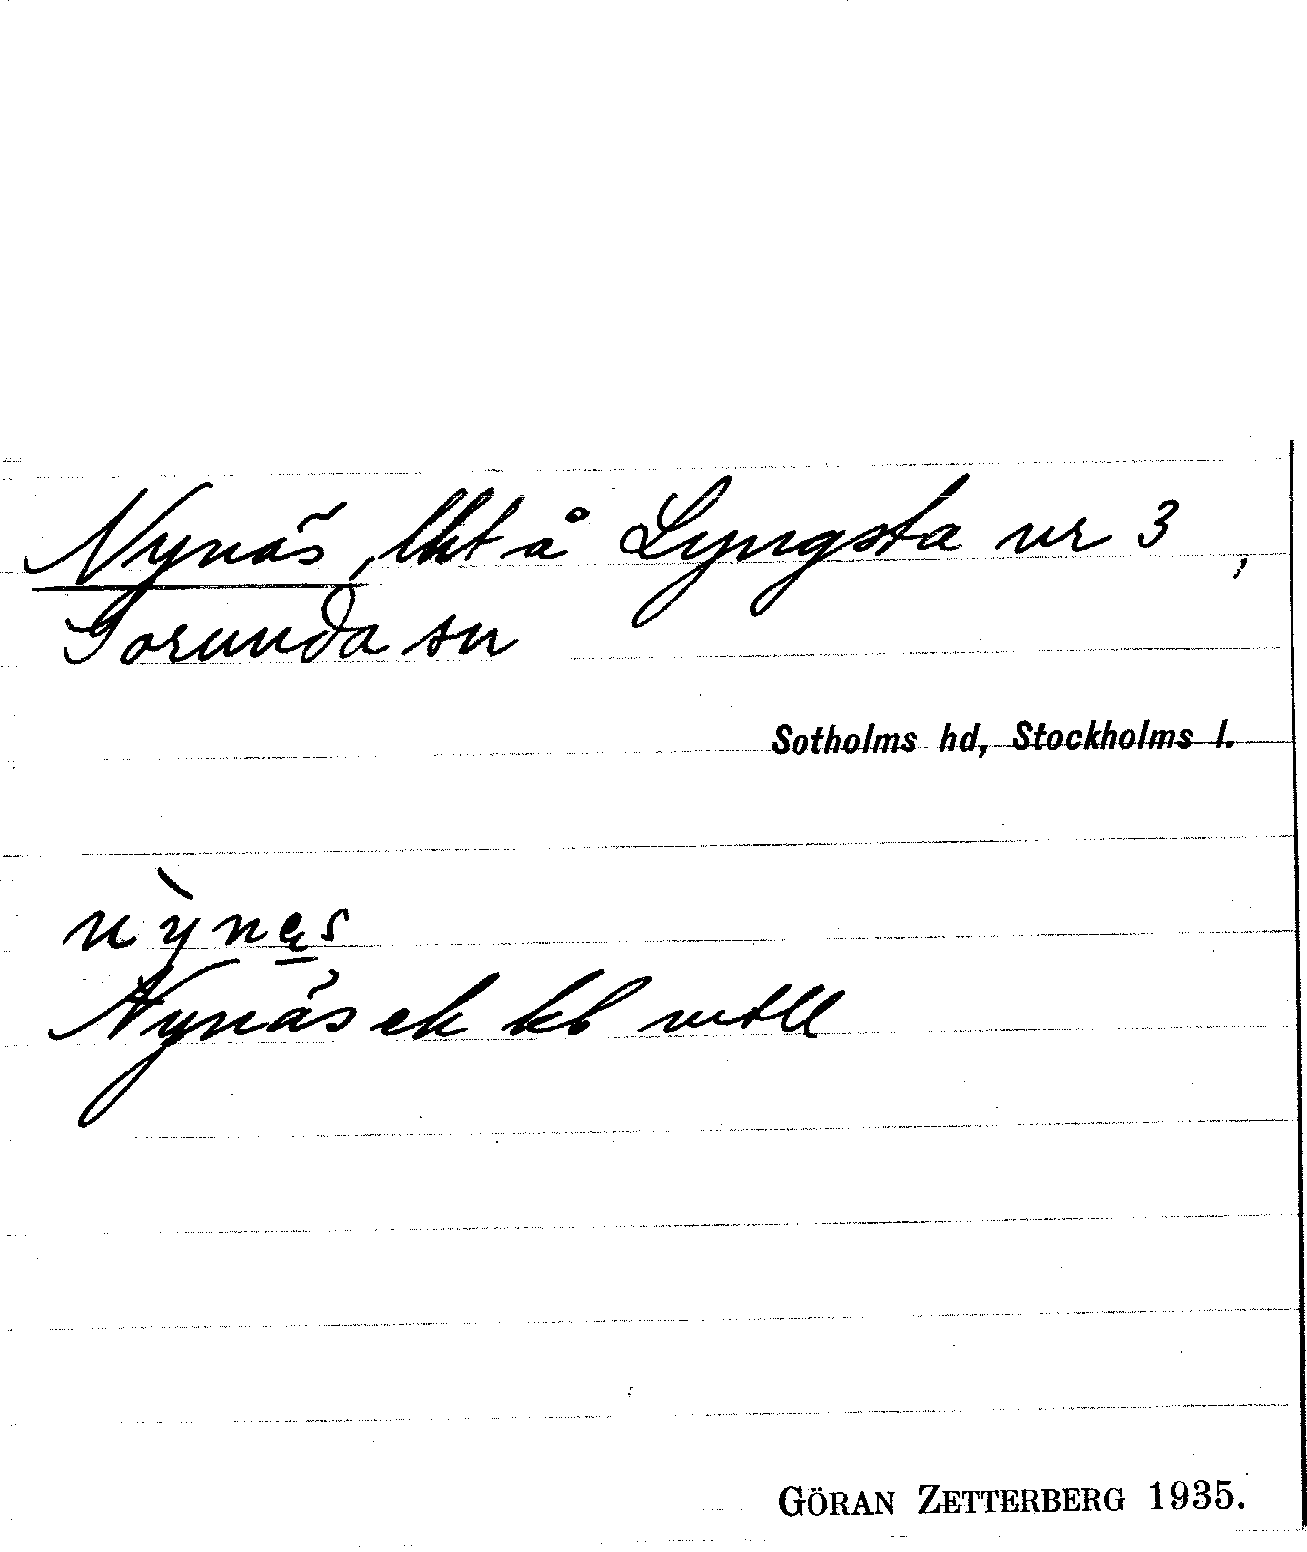 Nynäs, lht å Lyngsta nr 3,
Sorunda sn
Sotholms hd, Stockholms l.
nỳnęs
Nynäs ek kb mtll
GÖRAN ZETTERBERG 1935.